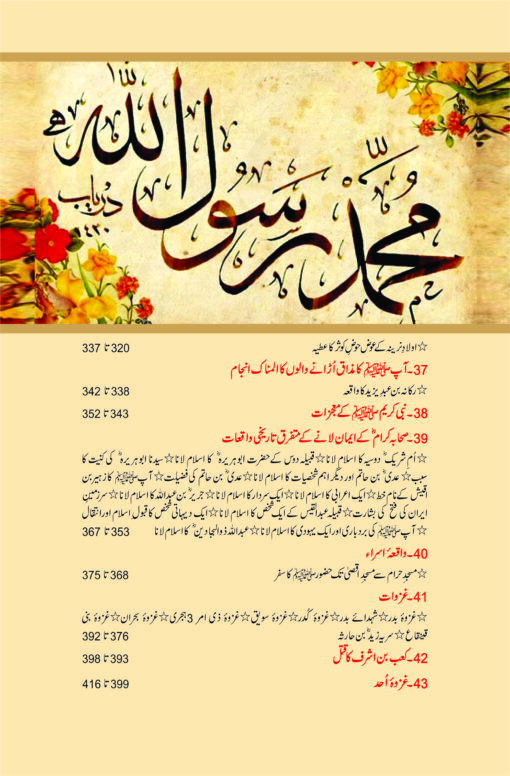 محمد رسول الله
درباب
۱۴۲۰
☆اولادِ نرینہ کے عوض حوضِ کوثر کا عطیہ 320 تا 337
37۔آپ ﷺ کا مذاق اُڑانے والوں کا المناک انجام
☆رکانہ بن عبد یزید کا واقعہ 338 تا 342
38۔نبی کریم ﷺ کے معجزات 343 تا 352
39۔صحابہ کرامؓ کے ایمان لانے کے متفرق تاریخی واقعات
☆اُمِ شریکؓ دوسیہ کا اسلام لانا☆قبیلہ دوس کے حضرت ابوہریرہؓ کا اسلام لانا☆سیدنا ابوہریرہؓ کی کنیت کا
سبب☆عدیؓ بن حاتم اور دیگر اہم شخصیات کا اسلام لانا☆عدیؓ بن حاتم کی فضیلت☆آپ ﷺ کا زہیر بن
اُقیش کے نام خط☆ایک اعرابی کا اسلام لانا☆ایک سردار کا اسلام لانا☆جریرؓ بن عبداللہ کا اسلام لانا☆سرزمینِ
ایران کی فتح کی بشارت☆قبیلہ عبدالقیس کے ایک شخص کا اسلام لانا☆ایک دیہاتی شخص کا قبول اسلام اور انتقال
☆آپ ﷺ کی بردباری اور ایک یہودی کا اسلام لانا☆عبداللہ ذوالبجادینؓ کا اسلام لانا 353 تا 367
40۔واقعۂ اسراء
☆مسجدِ حرام سے مسجدِ اقصیٰ تک حضور ﷺ کا سفر 368 تا 375
41۔غزوات
☆غزوۂ بدر☆شہدائے بدر☆غزوۂ کُدر☆غزوۂ سویق☆غزوۂ ذی امر 3 ہجری☆غزوۂ بحران☆غزوۂ بنی
قینقاع☆سریہ زیدؓ بن حارثہ 376 تا 392
42۔کعب بن اشرف کا قتل 393 تا 398
43۔غزوۂ اُحد 399 تا 416